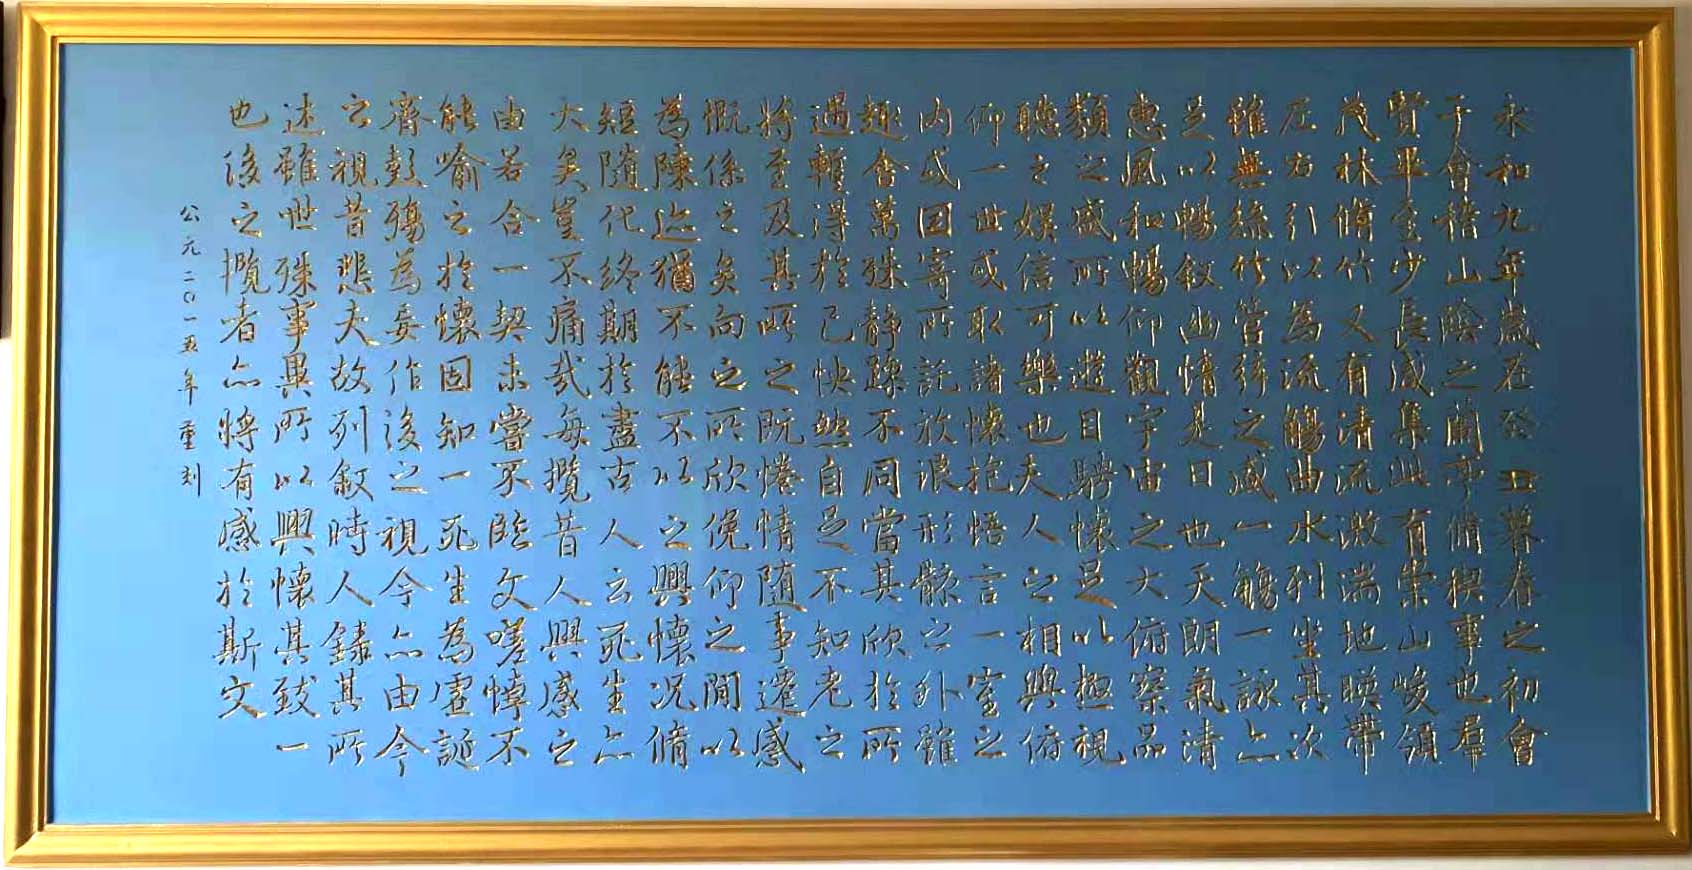 永和九年歲在癸丑暮春之初會
于會稽山陰之蘭亭脩禊事也羣
賢畢至少長咸集此有崇山峻領
茂林脩竹又有清流激湍地暎帶
左右引以為流觴曲水列坐其次
雖無絲竹管絃之盛一觴一詠亦
足以暢敘幽情是日也天朗氣清
惠風和暢仰觀宇宙之大俯察品
類之盛所以遊目騁懷足以極視
聽之娛信可樂也夫人之相與俯
仰一世或取諸懷抱悟言一室之
內或因寄所託放浪形骸之外雖
趣舍萬殊靜躁不同當其欣於所
遇暫得於己快然自足不知老之
將至及其所之既惓情隨事遷感
慨係之矣向之所欣俛仰之間以
為陳迹猶不能不以之興懷況脩
短隨化終期於盡古人云死生亦
大矣豈不痛哉每攬昔人興感之
由若合一契未嘗不臨文嗟悼不
能喻之於懷固知一死生為虛誕
齊彭殤為妄作後之視今亦由今
之視昔悲夫故列敘時人錄其所
述雖世殊事異所以興懷其致一
也後之攬者亦將有感於斯文
公元二〇一五年重刻